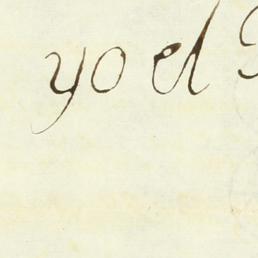 yo el